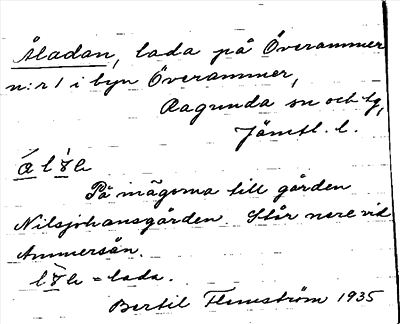 Åladan, lada på Överammer
n:r 1 i byn Överammer,
Ragunda sn och tg,
Jämtl. l.
På mägorna till gården
Nilsjohansgården. Står nere vid
Ammersån.
= lada.
Bertil Flemström 1935